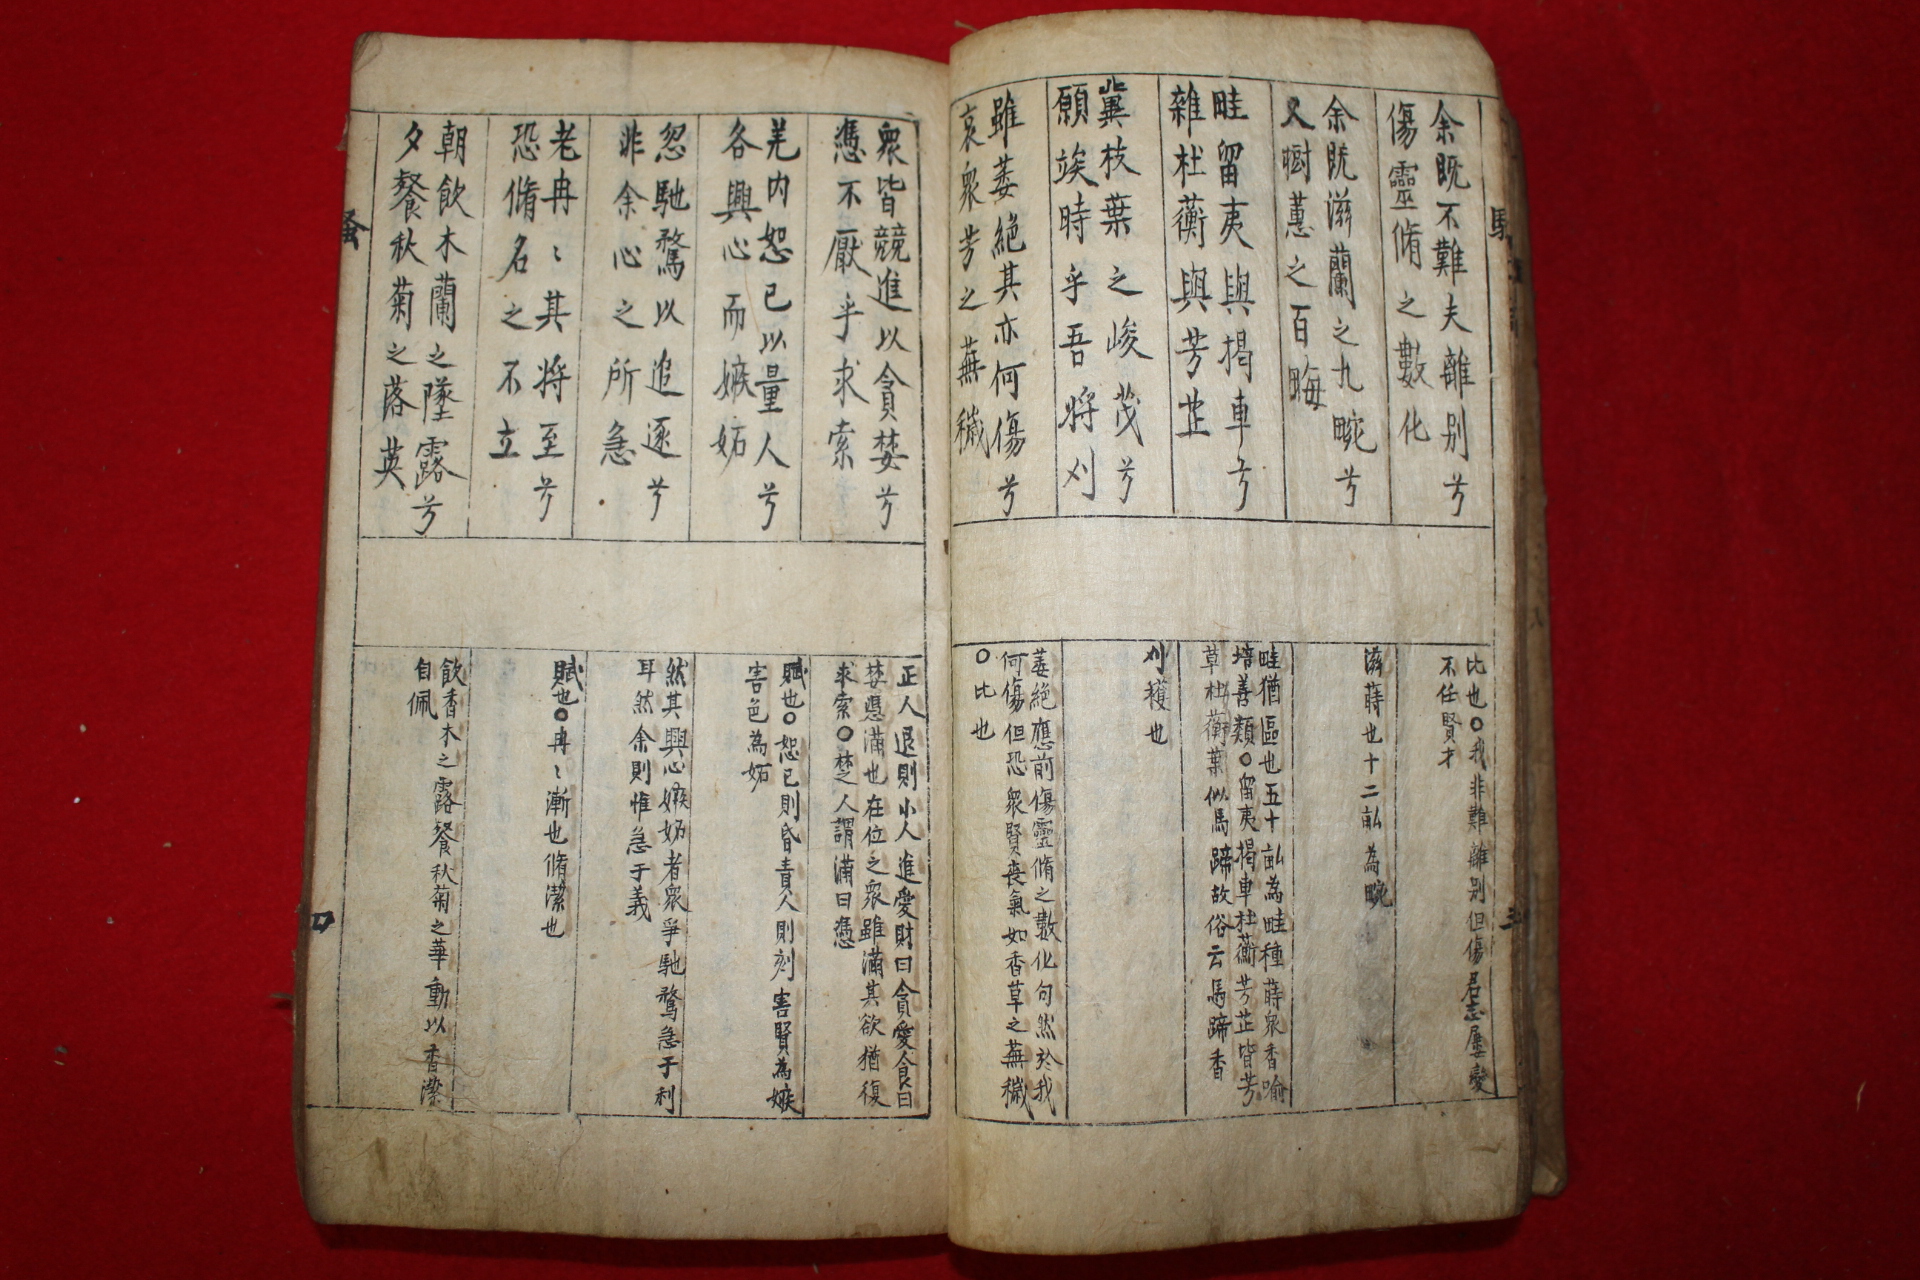 余旣不難夫離別兮
傷靈脩之數化
余旣滋蘭之九畹兮
又樹蕙之百畮
畦留夷與揭車兮
雜杜蘅與芳芷
冀枝葉之峻茂兮
願竢時乎吾將刈
雖萎絕其亦何傷兮
哀衆芳之蕪穢
比也〇我非難離別但傷君志屢變
不任賢才
滋蒔也十二畝為畹
畦猶區也五十畝為畦種蒔衆香喻
培善類〇留夷揭車杜蘅芳芷皆芳
草杜蘅葉似馬蹄故俗云馬蹄香
刈穫也
萎絕應前傷靈脩之數化句然於我
何傷但恐衆賢喪氣如香草之蕪穢
〇比也
衆皆競進以貪婪兮
憑不厭乎求索
羌內恕己以量人兮
各興心而嫉妬
忽馳騖以追逐兮
非余心之所急
老冉〻其將至兮
恐脩名之不立
朝飮木蘭之墜露兮
夕餐秋菊之落英
正人退則小人進愛財曰貪愛食曰
婪憑滿也在位之衆雖滿其欲猶復
求索〇楚人謂滿曰憑
賦也〇恕己則昏責人則刻害賢為嫉
害色為妬
然其興心嫉妬者衆爭馳騖急于利
耳然余則惟急于義
賦也〇冉〻漸也脩潔也
飮香木之露餐秋菊之華動以香潔
自佩
騷
四